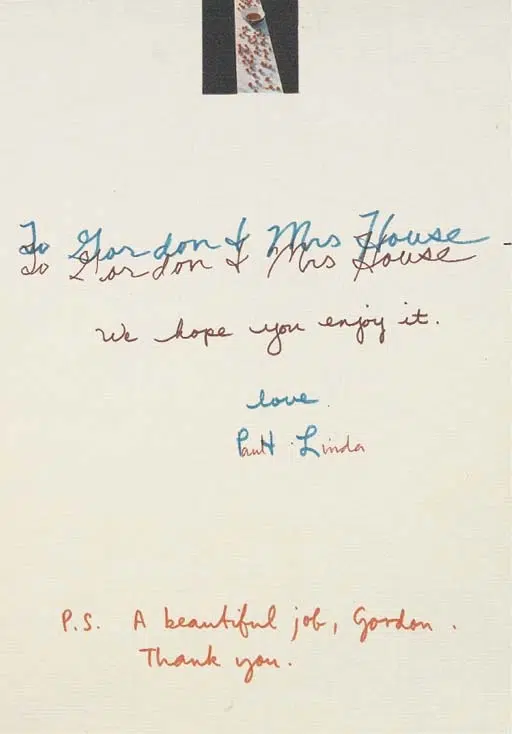 To Gordon & Mrs House
To Gordon & Mrs House
We hope you enjoy it.
love
Paul + Linda
P.S. A beautiful job, Gordon.
Thank you.